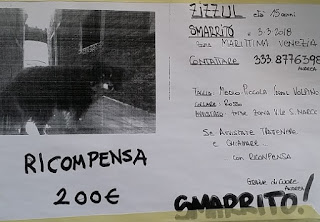 ZIZZUL età 15 anni
SMARRITO il 3-3-2018
MARITTIMA VENEZIA
CONTATTARE 333.8776398
ANDREA
TAGLIA: MEDIO-PICCOLA VOLPINO
COLLARE: ROSSO
AVVISTATO: ZONA V.LE S. MARCO
SE AVVISTATE TRATENERE
E CHIAMARE...
CON RICOMPENSA
GRAZIE DI CUORE
ANDREA
RICOMPENSA
200€
SMARRITO!